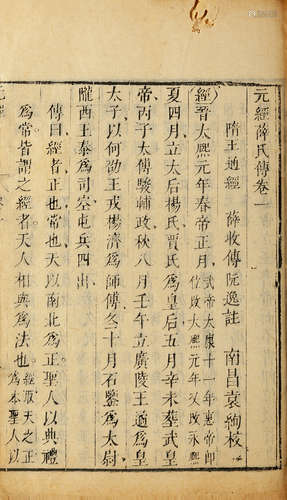 元經薛氏傳卷一
隋王通經 薛收傳 阮逸註 南昌袁絢校
經晉太熙元年春帝正月武帝太康十一年惠帝即位改太熙元年又改永熙
夏四月立太后楊氏賈氏為皇后五月辛未葬武皇
帝丙子太傅駿輔政秋八月壬午立廣陵王遹為皇
太子以何劭王戎楊濟為師傅冬十月石鑒為太尉
隴西王泰為司空屯兵四出
傳曰經者正也常也天以南北為正聖人以典禮
為常皆謂之經者天人相與為法也經取天之正為本聖人以